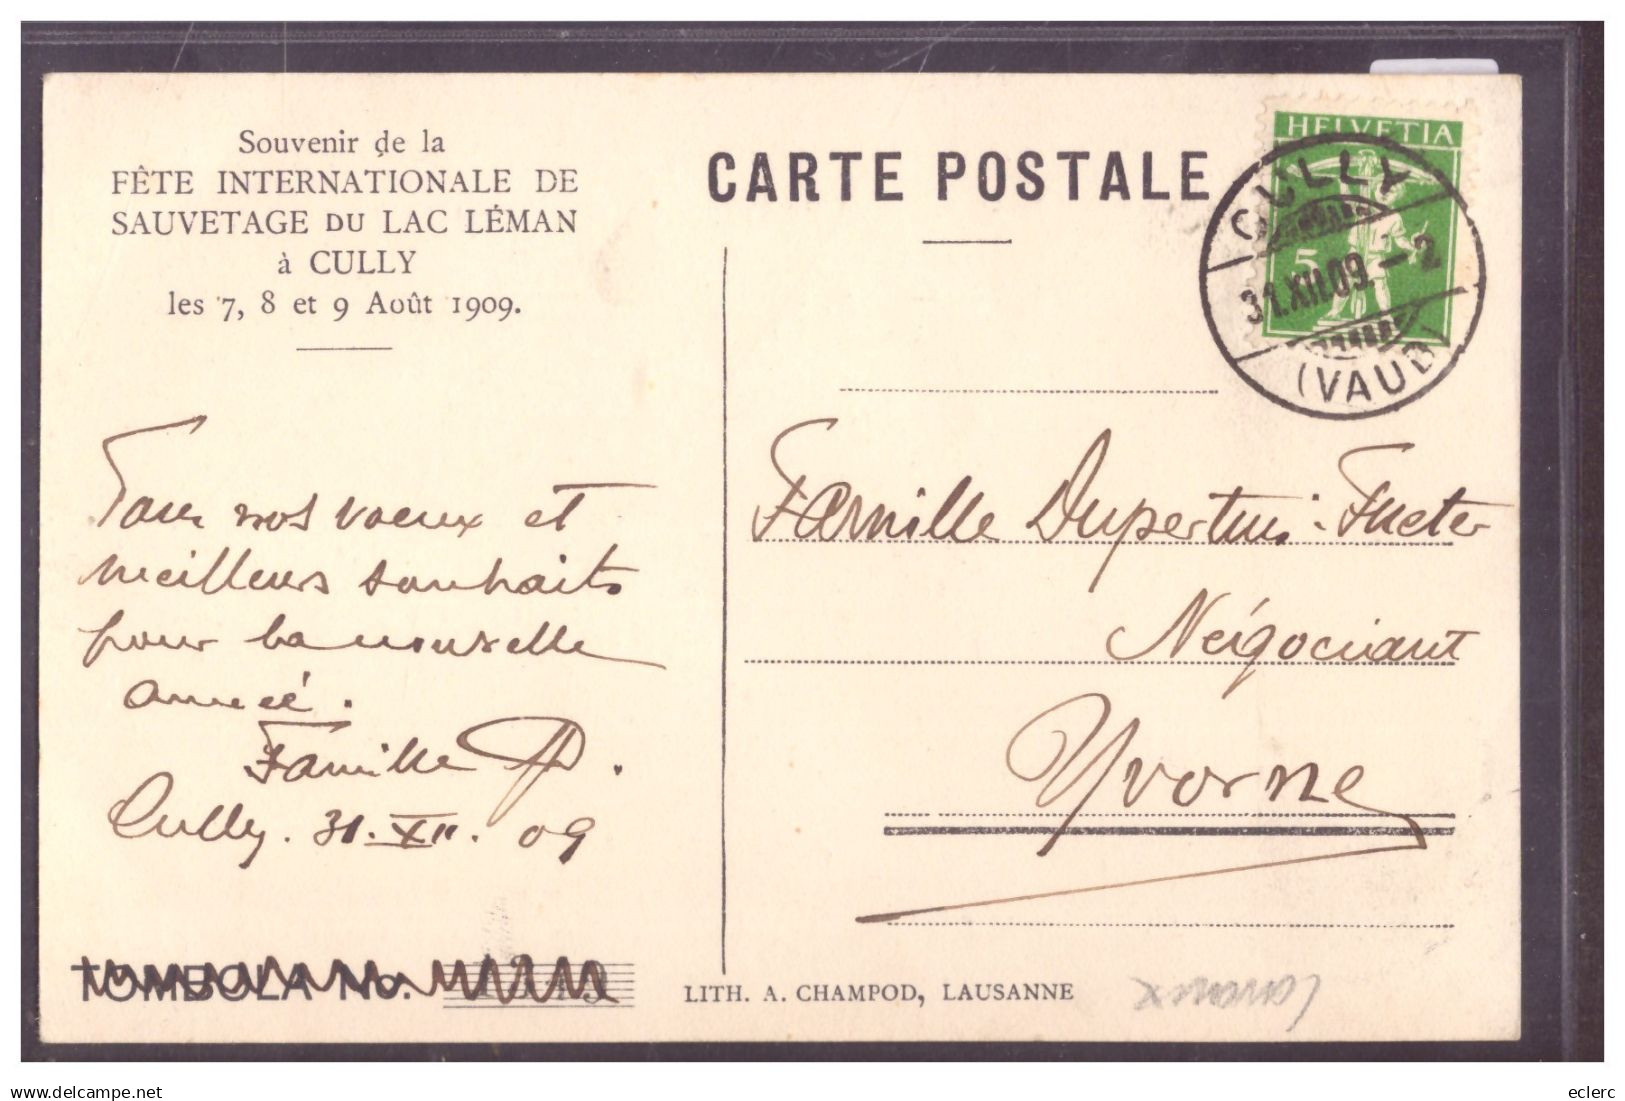 Souvenir de la
FÊTE INTERNATIONALE DE
SAUVETAGE DU LAC LÉMAN
à CULLY
les 7, 8 et 9 Août 1909.
CARTE POSTALE
HELVETIA
5
CULLY
31.XII.09.-2
(VAUD)
nos voeux et
meilleurs souhaits
pour la nouvelle
année.
Famille
Cully. 31.XII.09
Famille Dupertuis-Fueter
Négociant
Yvorne
TOMBOLA No.
LITH. A. CHAMPOD, LAUSANNE
Lavaux
eclerc
www.delcampe.net